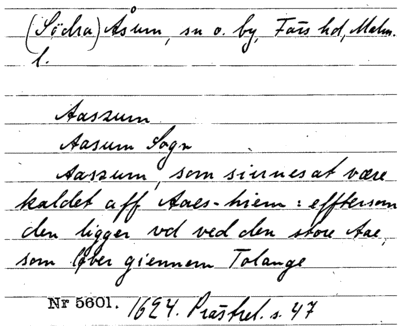 (Södra) Åsum, sn o. by, Färs hd, Malm.
l.
Aaszum
Aasum Sogn
Aaszum, som siunes at være
kaldet aff Aaes-hiem: efftersom
den ligger vd ved den store Aae,
som løber giennem Tolange
Nr 5601. 1624. Prästrel. s. 47